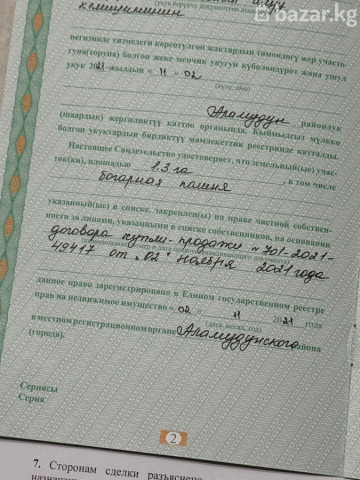 bazar.kg
негизинде тизмелеги көрсөтүлгөн жактардын тиешелүү жер участо-
гуна(торуна) болгон жеке менчик укугун күбөлөндүрөт жана ушул
укук 2021-жылдын « 11 » 02
(күнү, айы)
Аламудун районлук
(шаардык) жергиликтүү каттоо органында. Кыймылсыз мүлккө
болгон укуктардын бирдиктүү мамлекеттик реестринде катталды.
Настоящее Свидетельство удостоверяет, что земельный(ые) учас-
ток(ки), площадью 1.3 га , в том числе
богарная пашня
указанный(ые) в списке, закреплен(ы) на праве частной собствен-
ности за лицами, указанными в списке собственников, на основании
договора купли-продажи № 701-2021-
49417 от „02" ноября 2021 года
данное право зарегистрировано в Едином государственном реестре
прав на недвижимое имущество « 02 » 11 2021 года
(дата, месяц, год)
в местном регистрационном органе Аламудунского района
(города).
Сериясы
Серия
2
7. Сторонам сделки разъяснено